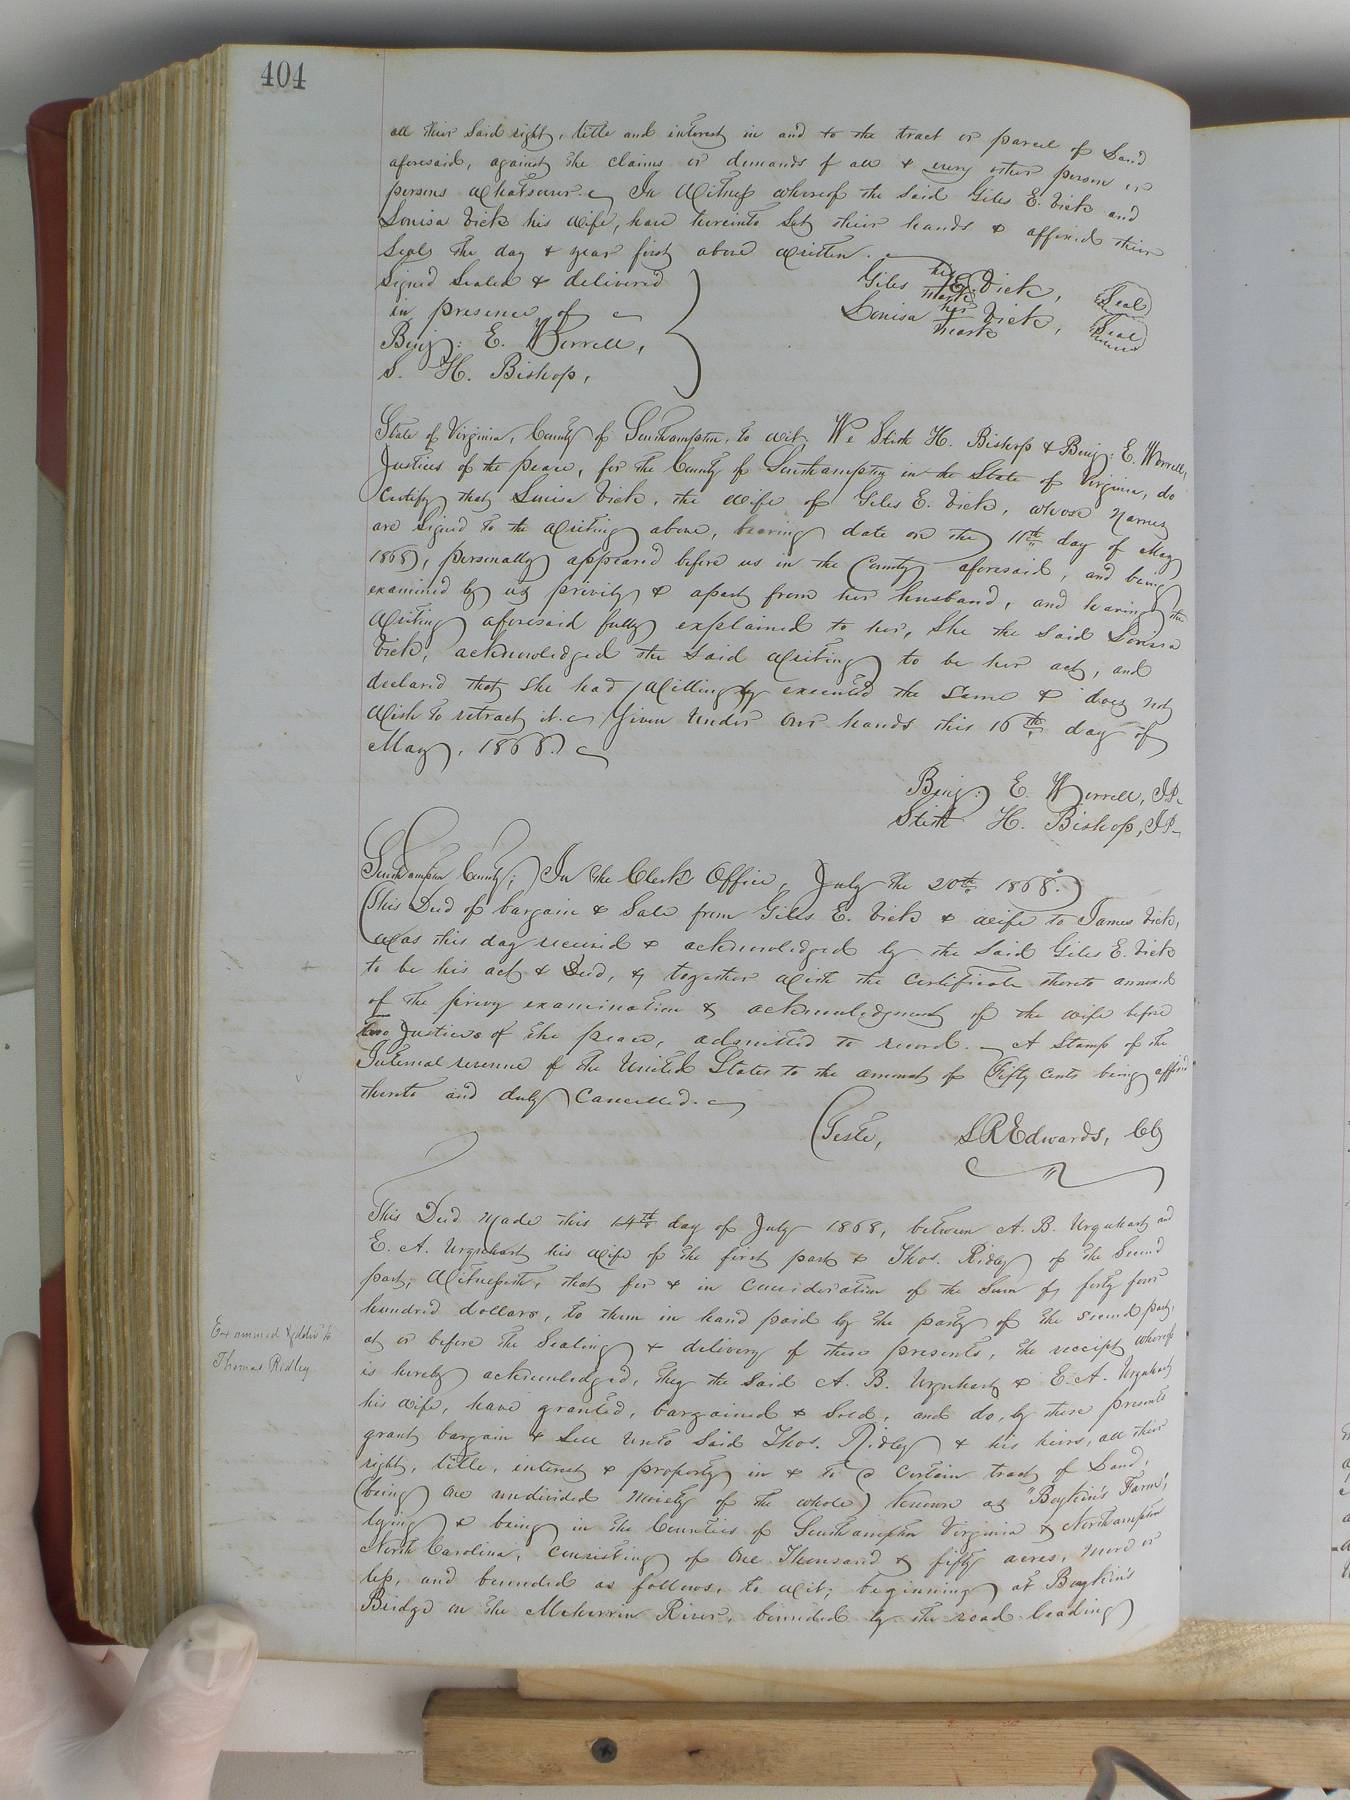 404
all their said right, title and interest in and to the tract or parcel of Land
aforesaid, against the claims or demands of all & every other person or
persons whatsoever. In Witness whereof the said Giles E. Vick and
Louisa Vick his wife, have hereunto set their hands & affixed their
seals the day & year first above written.
Signed Sealed & delivered
in presence of
Benj: E. Worrell,
S. H. Bishop,
Giles his E. Vick, Seal
mark
Louisa her Vick, Seal
mark
State of Virginia, County of Southampton, to wit. We Stith H. Bishop & Benj: E. Worrell,
Justices of the peace, for the County of Southampton in the State of Virginia, do
certify that Louisa Vick, the wife of Giles E. Vick, whose names
are signed to the writing above, bearing date on the 11th day of May
1868, personally appeared before us in the County aforesaid, and being
examined by us privily & apart from her husband, and having the
writing aforesaid fully explained to her, She the said Louisa
Vick, acknowledged the said writing to be her act, and
declared that she had willingly executed the same & does not
wish to retract it. Given under our hands this 16th day of
May, 1868.
Benj: E. Worrell, J.P.
Stith H. Bishop, J.P.
Southampton County; In the Clerks Office, July the 20th 1868.
This Deed of bargain & Sale from Giles E. Vick & wife to James Vick,
was this day received & acknowledged by the said Giles E. Vick
to be his act & Deed, & together with the certificate thereto annexed
of the privy examination & acknowledgment of the wife before
two Justices of the peace, admitted to record. A Stamp of the
Internal revenue of the United States to the amount of Fifty cents being affixed
thereto and duly cancelled.
Teste, L R Edwards, CC
This Deed made this 14th day of July 1868, between A. B. Urquhart and
E. A. Urquhart his wife of the first part & Thos. Ridley of the Second
part; Witnesseth, that for & in consideration of the Sum of forty four
hundred dollars, to them in hand paid by the party of the second part,
at or before the Sealing & delivery of these presents, the receipt whereof
is hereby acknowledged, they the said A. B. Urquhart & E. A. Urquhart
his wife, have granted, bargained & Sold, and do, by these presents
grant bargain & Sell unto said Thos. Ridley & his heirs, all their
right, title, interest & property in & to a certain tract of Land,
(being one undivided moiety of the whole) known as "Boykin's Farm",
lying & being in the Counties of Southampton Virginia & Northampton
North Carolina, consisting of One Thousand & fifty acres, more or
less, and bounded as follows, to wit; beginning at Boykin's
Bridge on the Meherrin River, bounded by the road leading
Examined & deliv'd to
Thomas Ridley